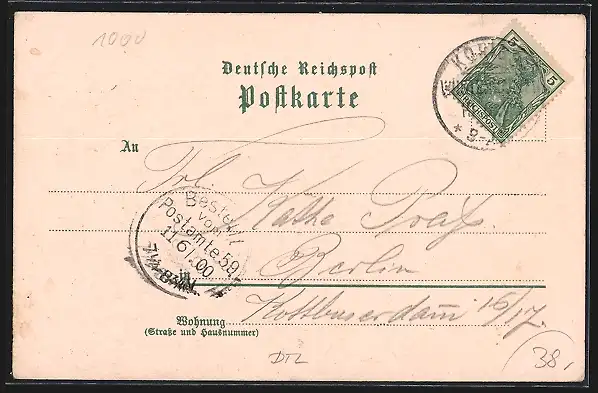 1000
Deutsche Reichspost
Postkarte
5
5
An
Frl. Käthe
Berlin
Kottbuserdam 16/17.
Bestellt
vom
Postamte 59
11/6/00
7½-8½N.
Wohnung
(Straße und Hausnummer)
DTL
38,